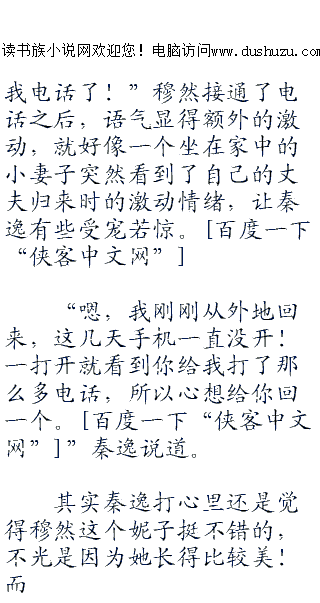 读书族小说网欢迎您！电脑访问www.dushuzu.com
我电话了！”穆然接通了电
话之后，语气显得额外的激
动，就好像一个坐在家中的
小妻子突然看到了自己的丈
夫归来时的激动情绪，让秦
逸有些受宠若惊。[百度一下
“侠客中文网”]
“嗯，我刚刚从外地回
来，这几天手机一直没开！
一打开就看到你给我打了那
么多电话，所以心想给你回
一个。[百度一下“侠客中文
网”]”秦逸说道。
其实秦逸打心里还是觉
得穆然这个妮子挺不错的，
不光是因为她长得比较美！
而